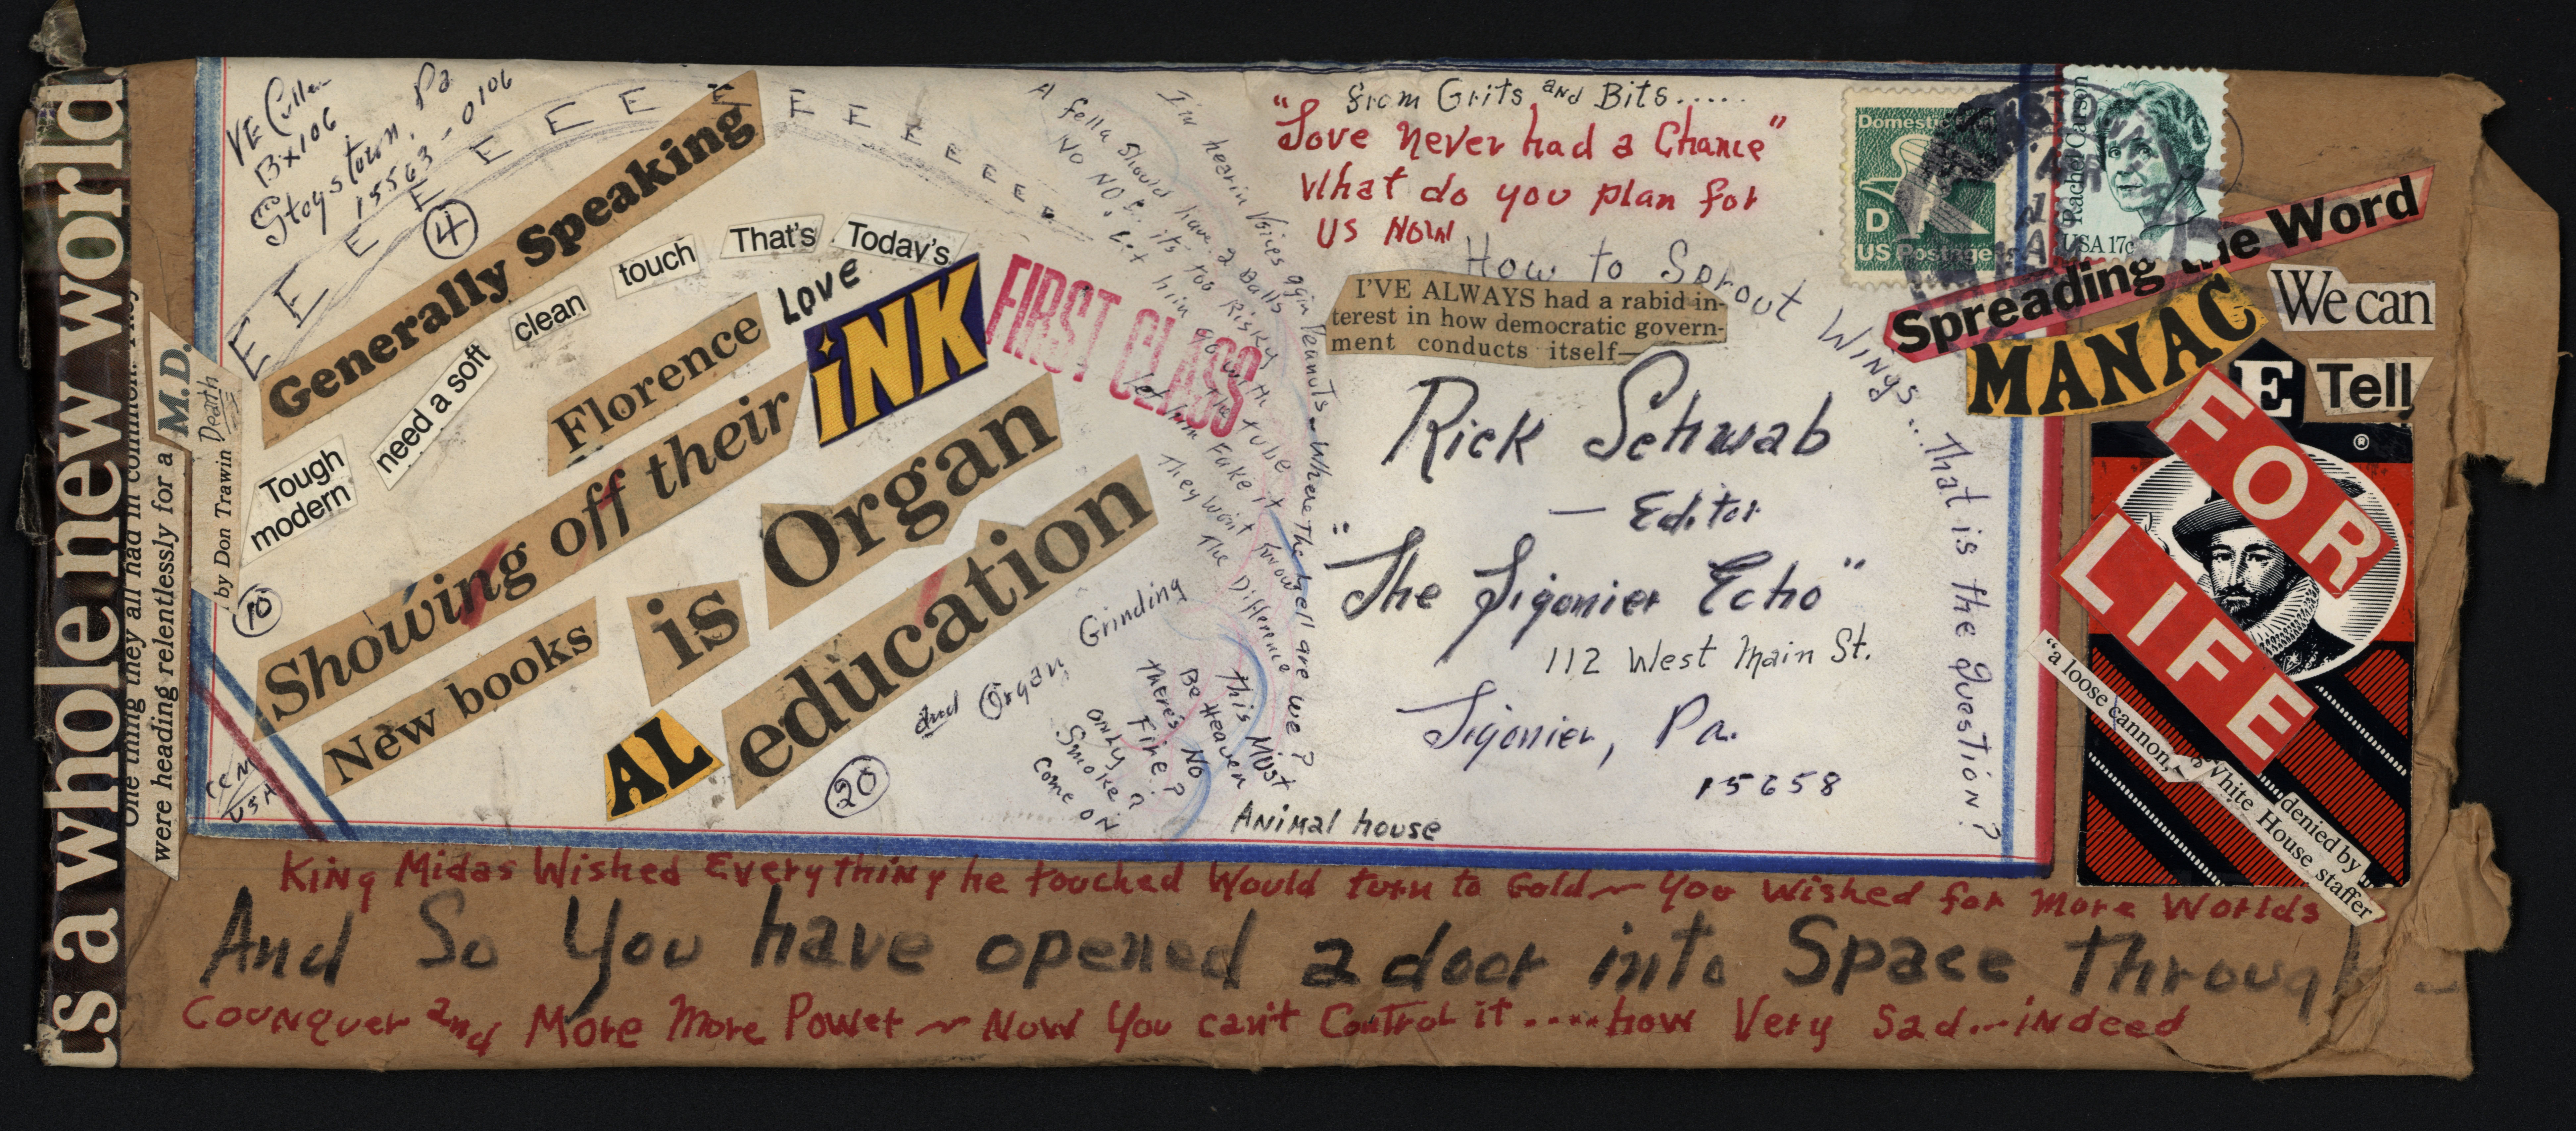 ts a whole new world.
One thing they all had in common: They
were heading relentlessly for a M.D.
by Don Trawin Death
VE Cullen
Bx 106
Stoystown, Pa
15563-0106
E E E E E E E E E E E E E E E E E
4
Generally Speaking
Tough
modern
need a soft
clean
touch
That's
Today's
Florence
Love
iNK
Showing off their
10
New books
is Organ
AL
education
20
and Organ Grinding
CEM
USA
FIRST CLASS
A fella should have 2 Balls
No No! its too Risky
Let him go with the tube
Let him Fake it
They Won't know
The Difference
I'm hearin Voices agin Peanuts - Where The hell are we?
This Must
Be Heaven
There's No
Fire?
only
Smoke?
Come on
Animal house
from Grits and Bits.....
"Love Never had a Chance"
What do you plan for
US NOW
How to Sprout Wings... That is the question?
I'VE ALWAYS had a rabid in-
terest in how democratic govern-
ment conducts itself—
Rick Schwab
— Editor
"The Ligonier Echo"
112 West Main St.
Ligonier, Pa.
15658
Domestic
D
US Postage
Rachel Carson
USA 17c
APR
Spreading the Word
MANAC
We can
E
Tell
®
FOR
LIFE
"a loose cannon,"
White House
denied by
staffer
King Midas Wished Everything he touched Would turn to Gold ~ You Wished for More Worlds
And So You have opened a door into Space Through -
Counquer and More More Power ~ Now You can't Control it .... how Very Sad... indeed